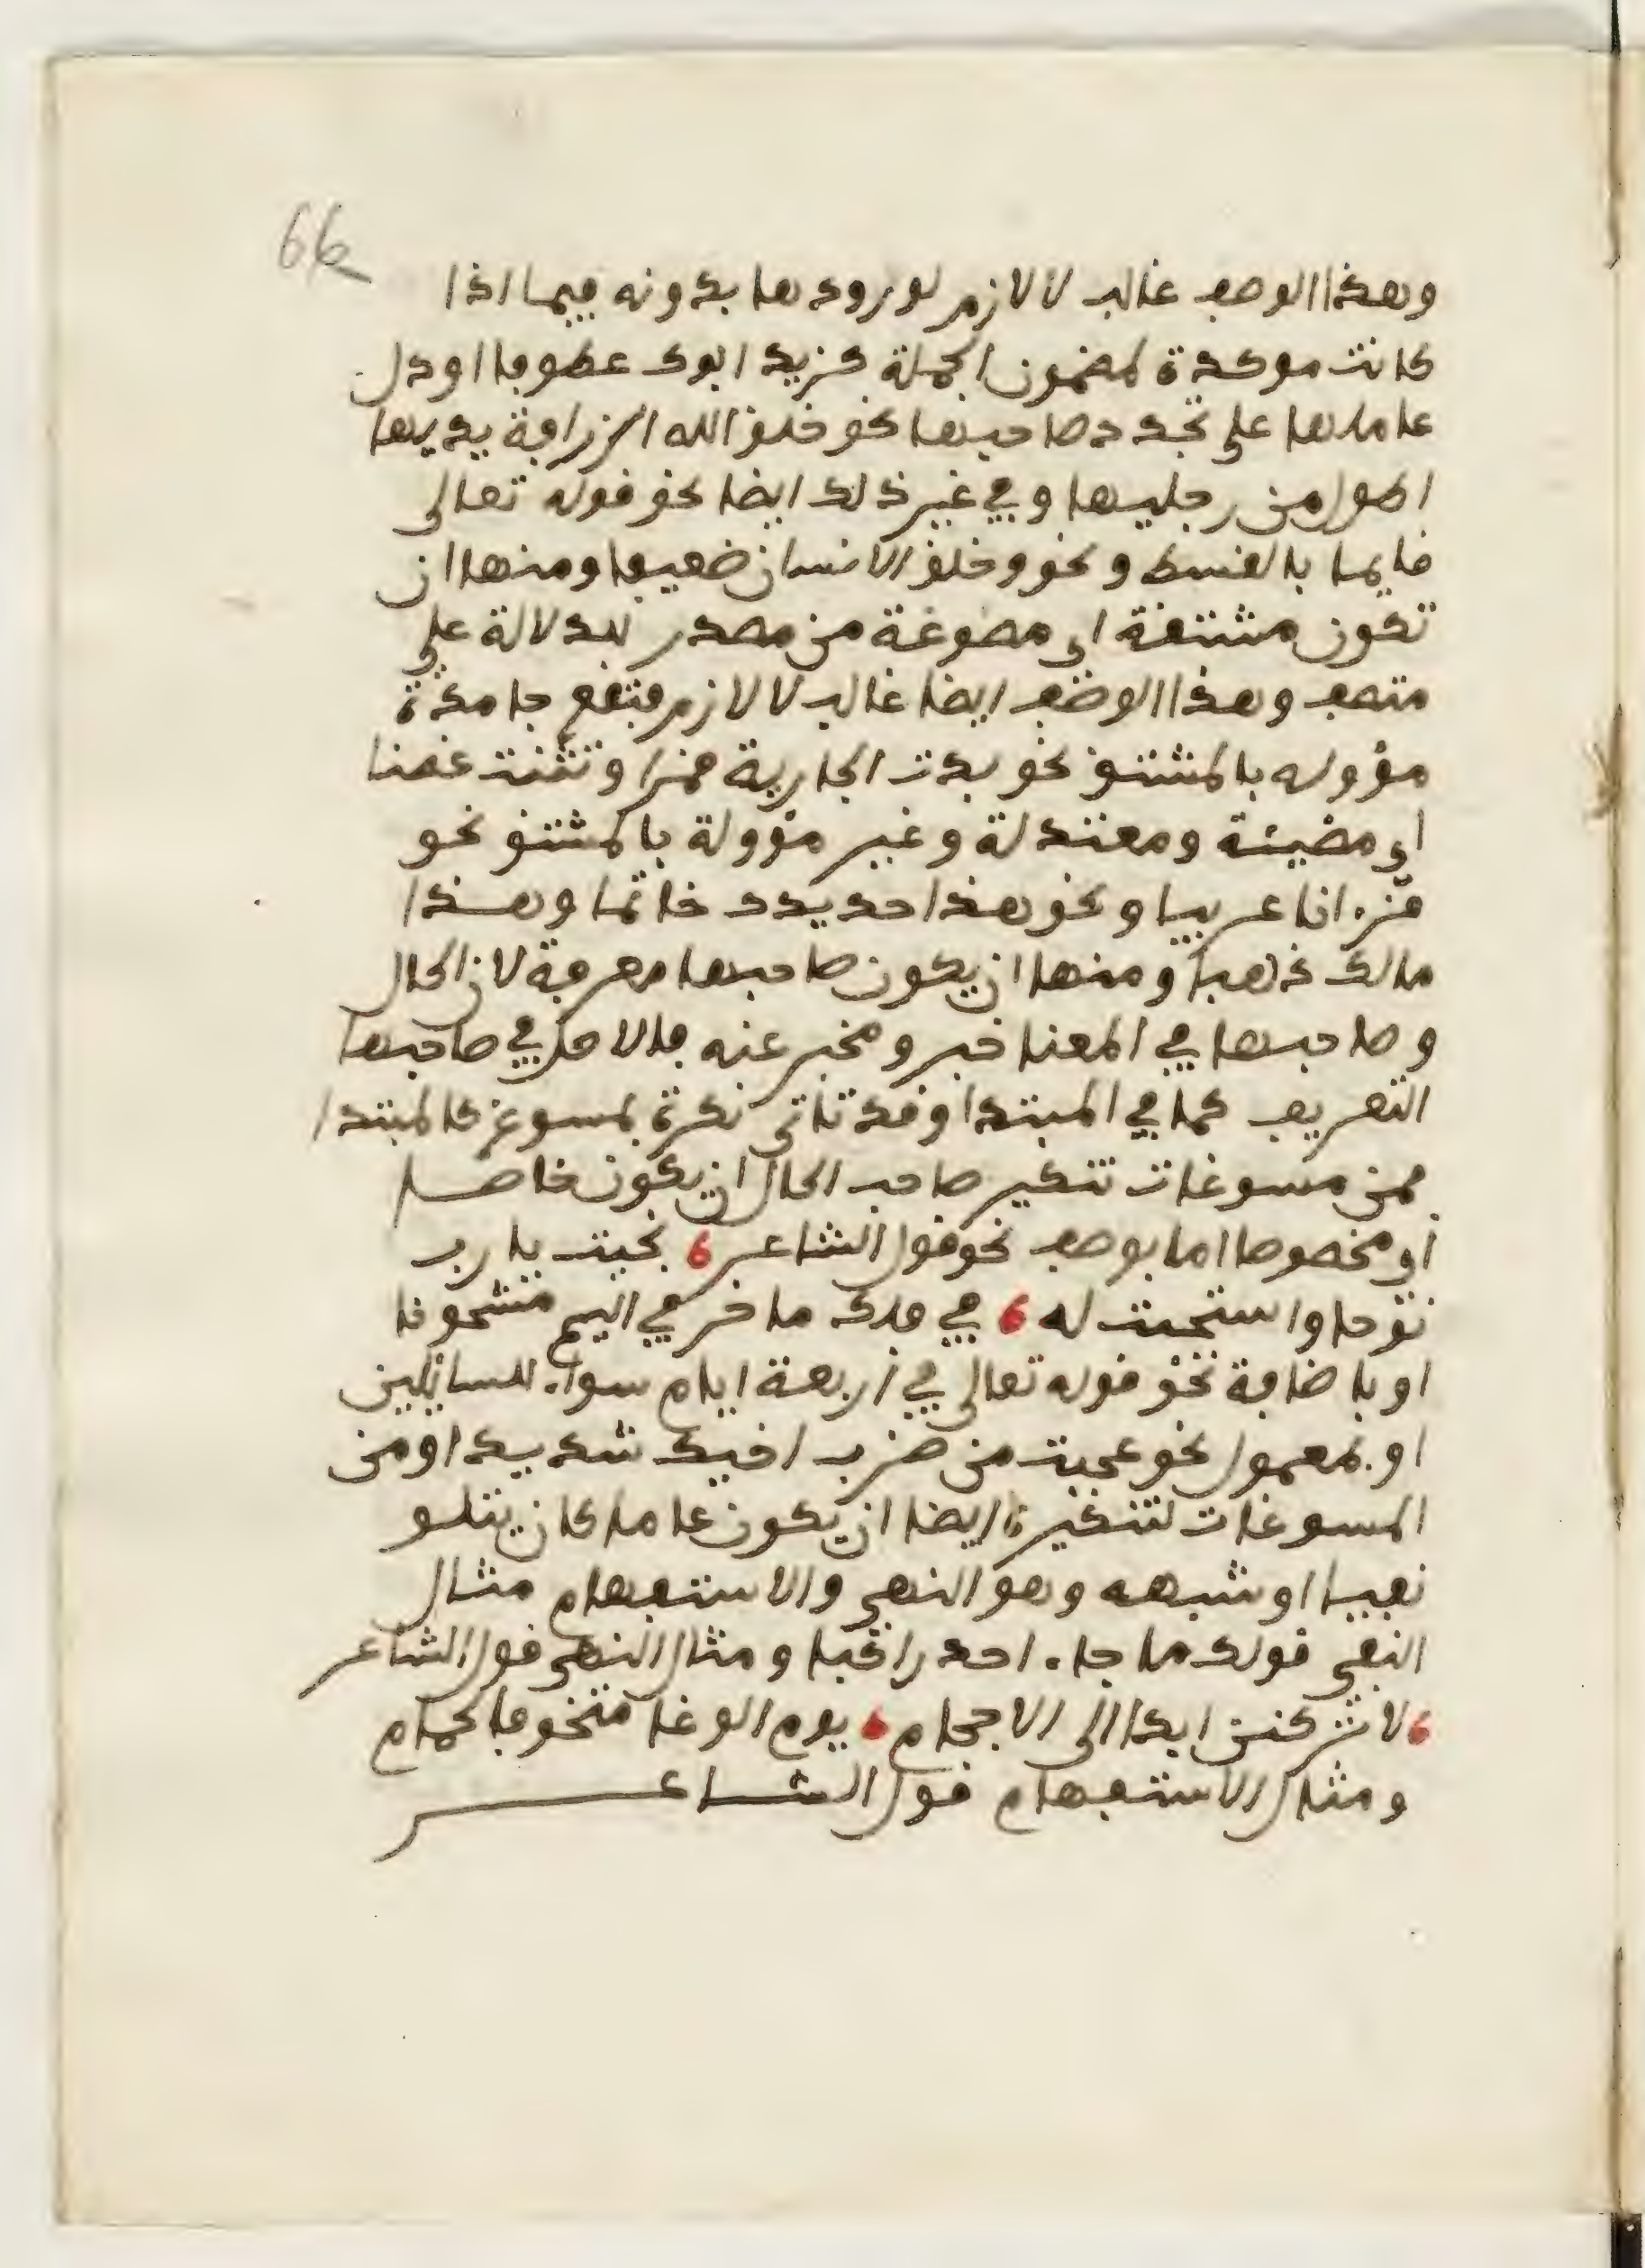 66
وهذا الوصف غالب لا لازم لورودها بدونه فيما اذا
كانت موكدة لمضمون الجملة كزيد ابوك عطوفا اودل
عاملها على تجدد صاحبها نحو خلق الله الزرافة يديها
اطول من رجليها وفي غير ذلك ايضا نحو قوله تعالى
قايما بالقسط ونحو وخلق الانسان ضعيفا ومنها ان
تكون مشتقة اي مصوغة من مصدر للدلالة على
متصف وهذا الوصف ايضا غالب لا لازم فتقع جامدة
مؤوله بالمشتق نحو بدت الجارية قمرا وتثنت غصنا
اي مضيئة ومعتدلة وغير مؤولة بالمشتق نحو
قرءانا عربيا ونحو هذا حديدك خاتما وهذا
مالك ذهبا ومنها ان يكون صاحبها معرفة لان الحال
وصاحبها في المعنا خبر ومخبر عنه فالاصل في صاحبها
التعريف كما في المبتدا وقد تاتى نكرة بمسوغ كالمبتدا
فمن مسوغات تنكير صاحب الحال ان يكون خاصا
او مخصوصا اما بوصف نحو قول الشاعر نجيت يا رب
نوحا واستجبت له في فلك ماخر في اليم مشحونا
او باضافة نحو قوله تعالى في اربعة ايام سواء للسائلين
او بمعمول نحو عجبت من ضرب اخيك شديدا ومن
المسوغات لتنكيره ايضا ان يكون عاملا كان يتلو
نفيا او شبهه وهو النهي والاستفهام مثال
النفي قولك ما جاء احد راكبا ومثال النهي قول الشاعر
لا يركنن ابدا الى الاحجام يوم الوغا متخوفا لحمام
ومثال الاستفهام قول الشاعر